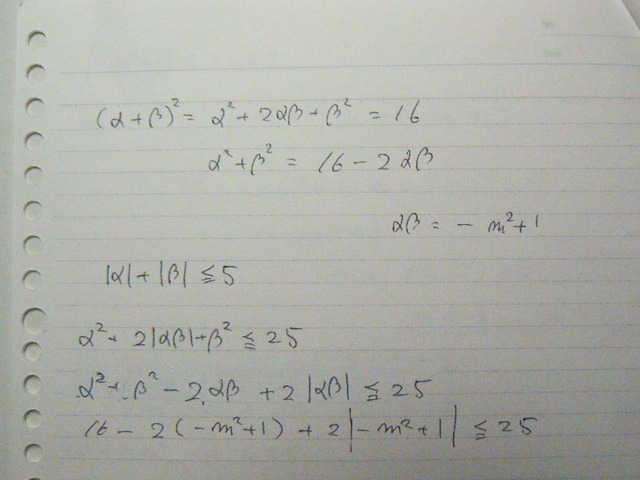 (α+β)² = α²+2αβ+β² = 16
α²+β² = 16-2αβ
αβ = - m²+1
|α|+|β| ≦ 5
α²+2|αβ|+β² ≦ 25
α²+β²-2αβ+2|αβ| ≦ 25
16-2(-m²+1)+2|-m²+1| ≦ 25